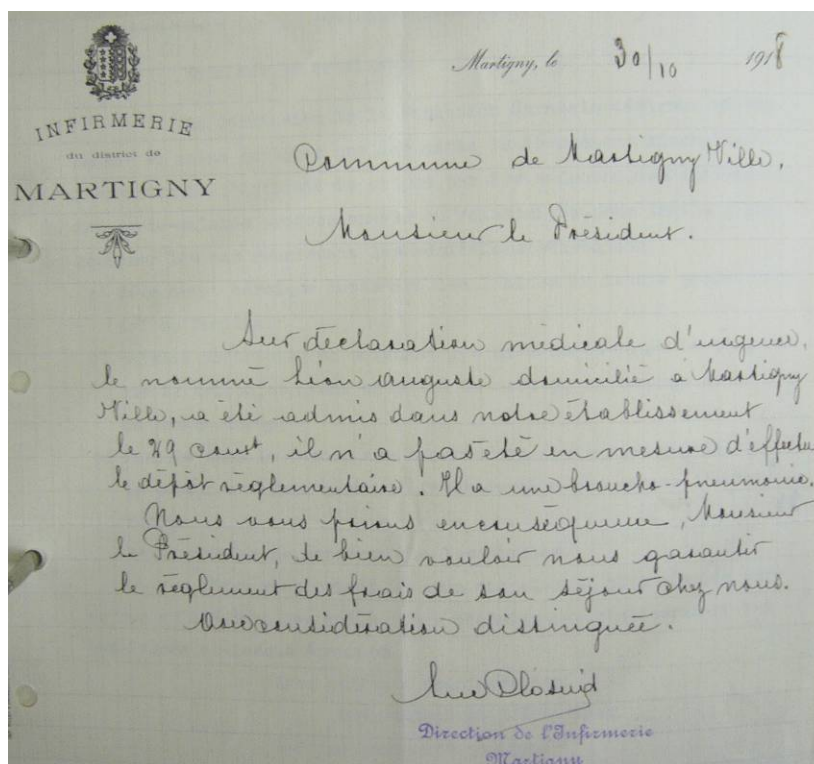 INFIRMERIE
du district de
MARTIGNY
Martigny, le 30/10 1918
Commune de Martigny Ville.
Monsieur le Président.
Sur déclaration médicale d'urgence,
le nommé Léon Auguste domicilié à Martigny
Ville, a été admis dans notre établissement
le 29 court, il n'a pas été en mesure d'effectuer
le dépôt règlementaire. Il a une broncho-pneumonie.
Nous vous prions en conséquence, Monsieur
le Président, de bien vouloir nous garantir
le règlement des frais de son séjour chez nous.
Avec considération distinguée.
Direction de l'Infirmerie
Martigny